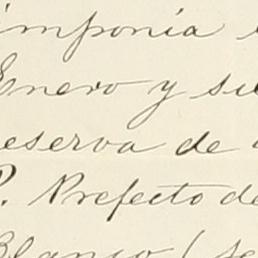 imponía
Enero y su
reserva de
P. Prefecto de
Blanco (se